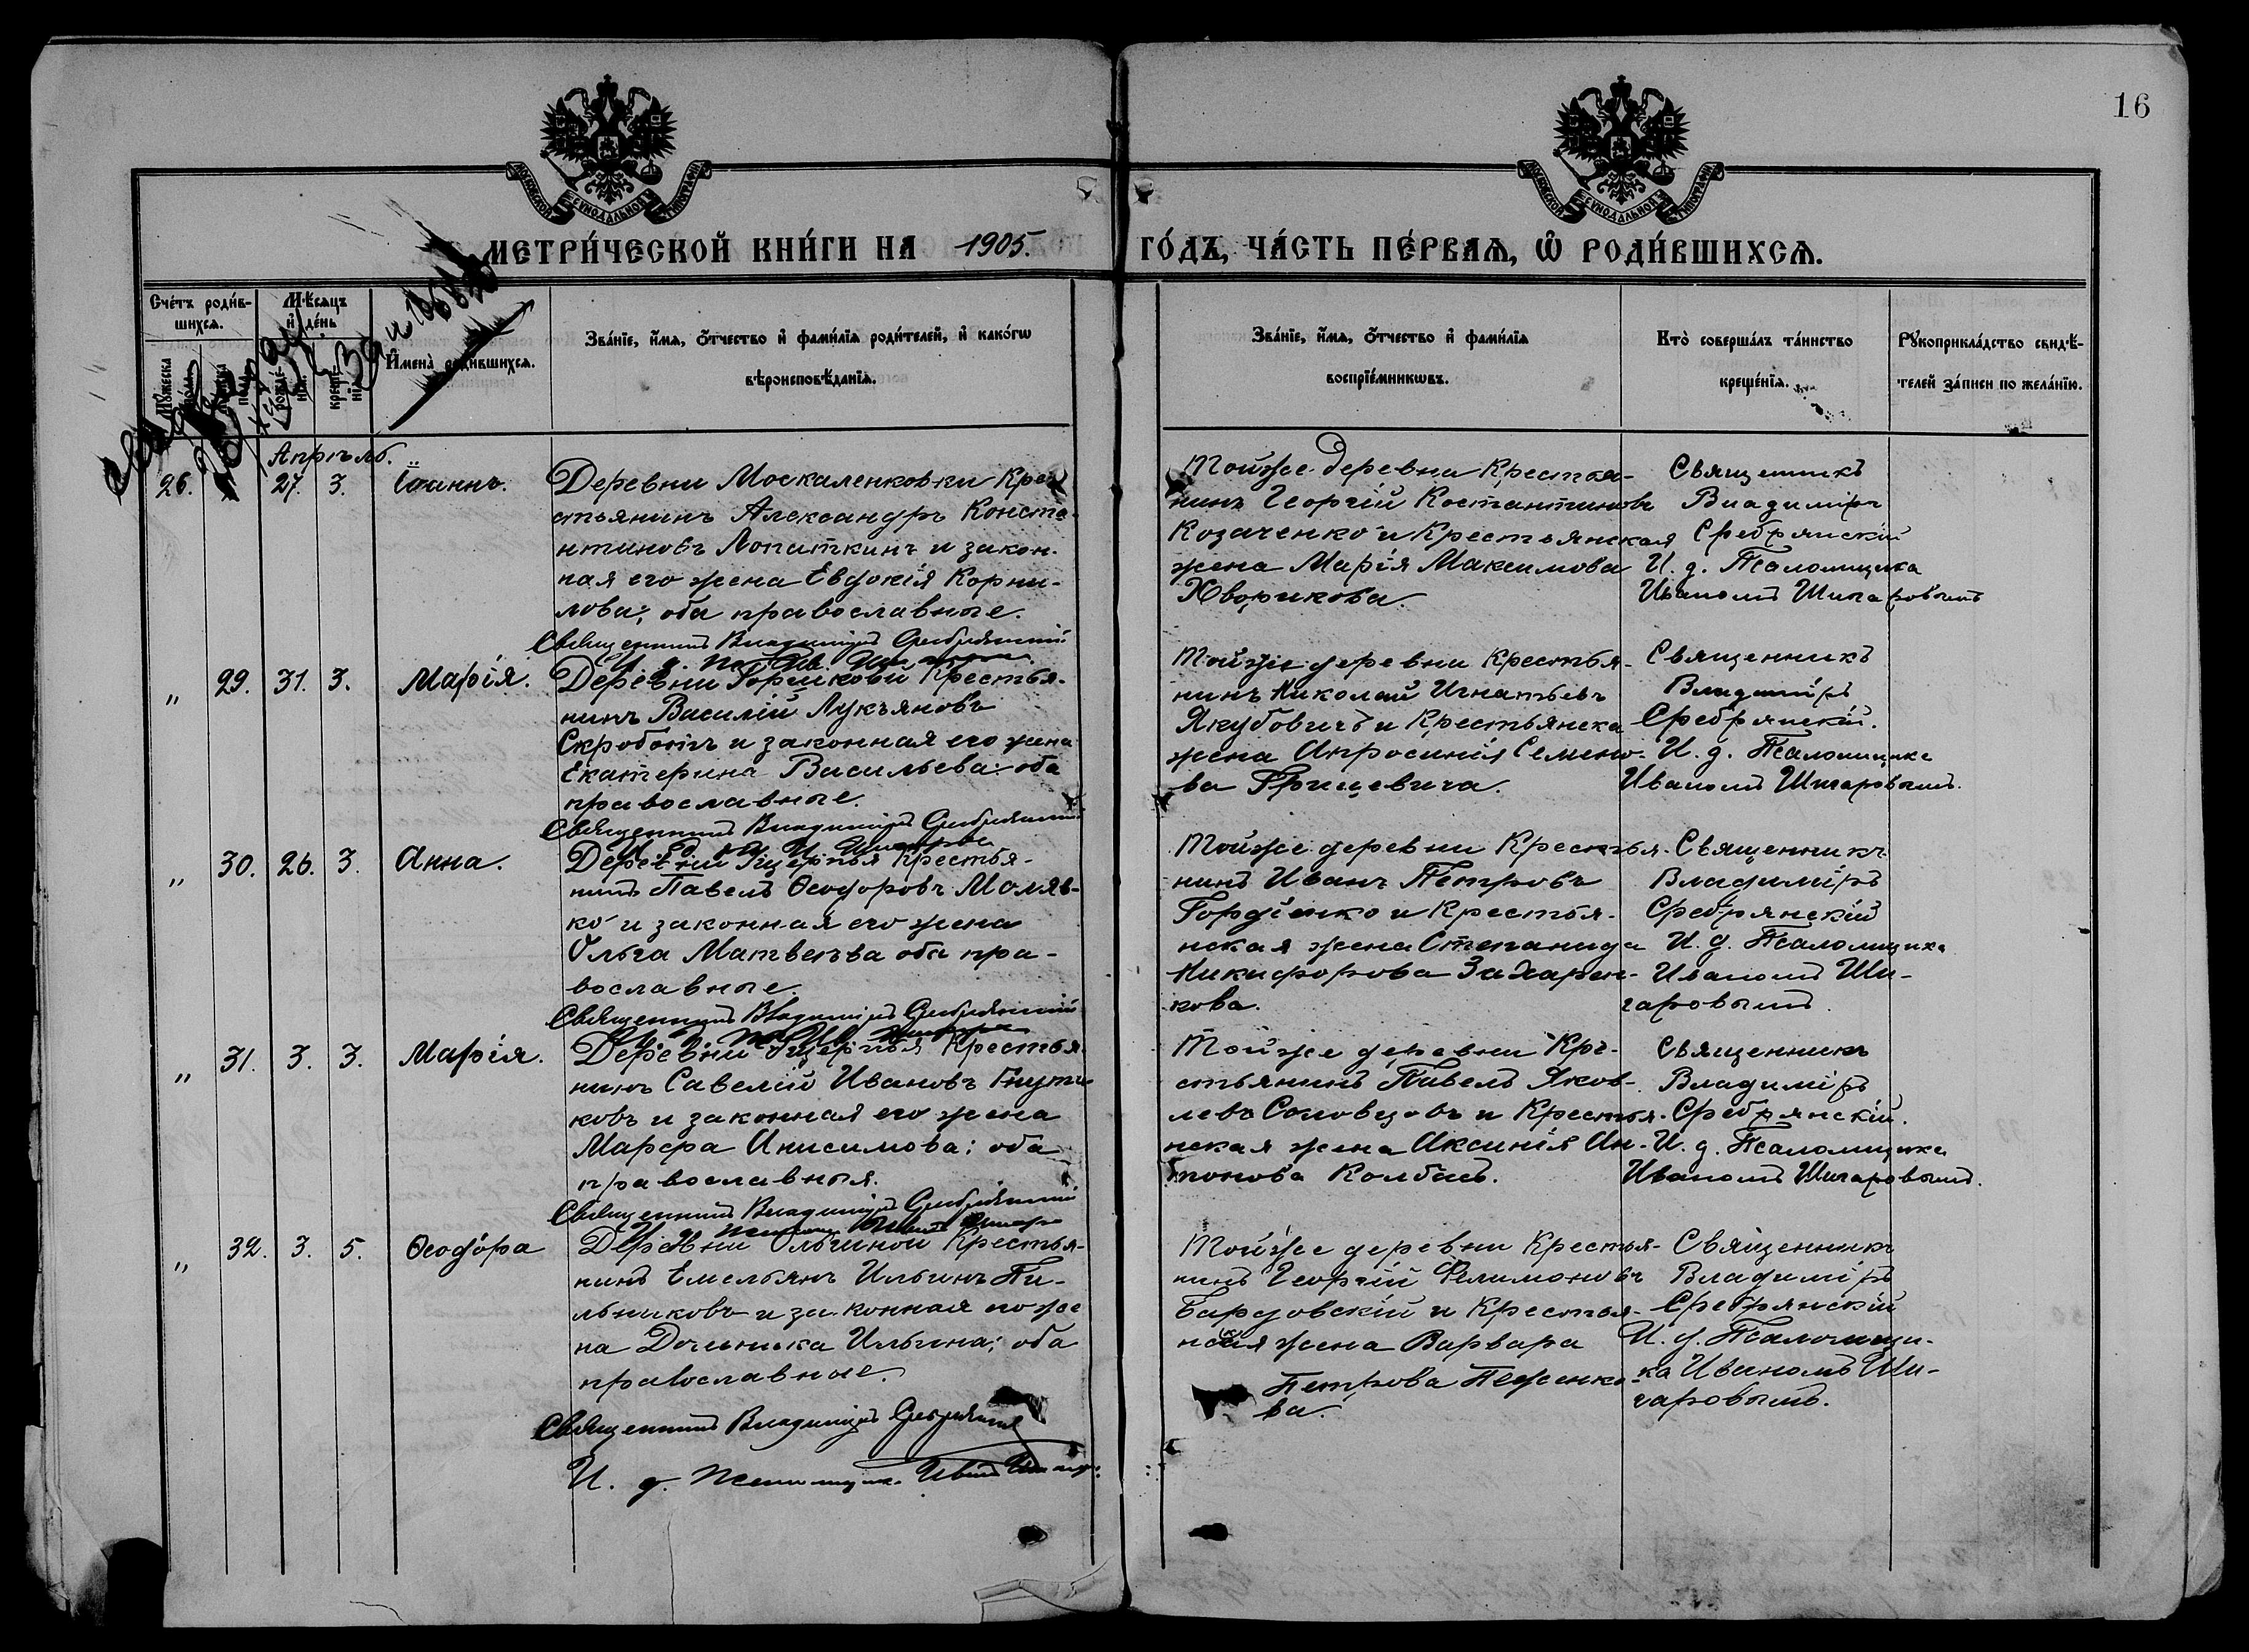 16
МОСКОВСКОЙ СѴНОДАЛЬНОЙ ТИПОГРАФІИ
МОСКОВСКОЙ СѴНОДАЛЬНОЙ ТИПОГРАФІИ
МЕТРИ́ЧЕСКОЙ КНИ́ГИ НА 1905. ГО́ДЪ, ЧА́СТЬ ПЕ́РВАѦ, Ѡ҆ РОДИ́ВШИХСѦ.
Сче́тъ роди́в-
шихсѧ.
Мѣ́сѧцъ
и҆ де́нь
Мꙋ́жеска
по́ла.
по́ла.
рожде́-
нїѧ.
креще́-
нїѧ.
И҆мена̀ роди́вшихсѧ.
Зва́нїе, и҆́мѧ, ѻ҆́тчество и҆ фами́лїѧ роди́телей, и҆ како́гѡ
вѣроисповѣ́данїѧ.
Зва́нїе, и҆́мѧ, ѻ҆́тчество и҆ фами́лїѧ
воспрїе́мникѡвъ.
Кто̀ соверша́лъ та́инство
креще́нїѧ.
Рꙋкоприкла́дство свидѣ́-
телей за́писи по жела́нїю.
Апрѣль.
26. 27. 3. Іоаннъ.
Деревни Москаленковки Кре-
стьянинъ Александръ Конста-
нтиновъ Лопаткинъ и закон-
ная его жена Евдокія Корни-
лова; оба православные.
Священникъ Владиміръ Сребрянскій
Тойже деревни Крестья-
нинъ Георгій Костантиновъ
Козаченко и Крестьянская
жена Марія Максимова
Хворикова.
Священникъ
Владиміръ
Сребрянскій
И. д. Псаломщика
Иваномъ Шигаровымъ
„ 29. 31. 3. Марія.
Деревни Горшкови Крестья-
нинъ Василій Лукъяновъ
и законная его жена
Екатерина Васильева: оба
православные.
Священникъ Владиміръ Сребрянскій
Тойже деревни Крестья-
нинъ Николай Игнатьевъ
Якубовичъ и Крестьянска
жена Апросинія Семено-
ва Грицевича.
Священникъ
Владиміръ
Сребрянскій.
И. д. Псаломщика
Иваномъ Шигаровымъ.
„ 30. 26. 3. Анна.
Деревни Крестья-
нинъ Павелъ Ѳеодоровъ Моляв-
ко и законная его жена
Ольга Матвеѣва оба пра-
вославные.
Священникъ Владиміръ Сребрянскій
Тойже деревни Крестья-
нинъ Иванъ Петровъ
Гордіенко и Крестья-
нская жена Степанида
Никифорова Захарен-
кова.
Священникъ
Владиміръ
Сребрянскій
И. д. Псаломщика
Иваномъ Ши-
гаровымъ.
„ 31. 3. 3. Марія.
Деревни Крестья-
нинъ Савелій Ивановъ
ковъ и законная его жена
Марфа Анисимова: оба
православныя.
Священникъ Владиміръ Сребрянскій
Тойже деревни Кре-
стьянинъ Павелъ Яков-
левъ Соловцовъ и Крестья-
нская жена Аксинія Ан-
тонова Колбасъ.
Священникъ
Владиміръ
Сребрянскій.
И. д. Псаломщика
Иваномъ Шигаровымъ.
„ 32. 3. 5. Ѳеодора
Деревни Ольгиной Крестья-
нинъ Емельянъ Ильинъ Пи-
льниковъ и законная его же
на Ильина; оба
православные.
Священникъ Владиміръ Сребрянскій
И. д. Псаломщика
Тойже деревни Крестья-
нинъ Георгій Филимоновъ
Бардовскій и Крестья-
нская жена Варвара
Петрова
ва.
Священникъ
Владиміръ
Сребрянскій
И. д. Псаломщи-
ка Иваномъ Ши-
гаровымъ.